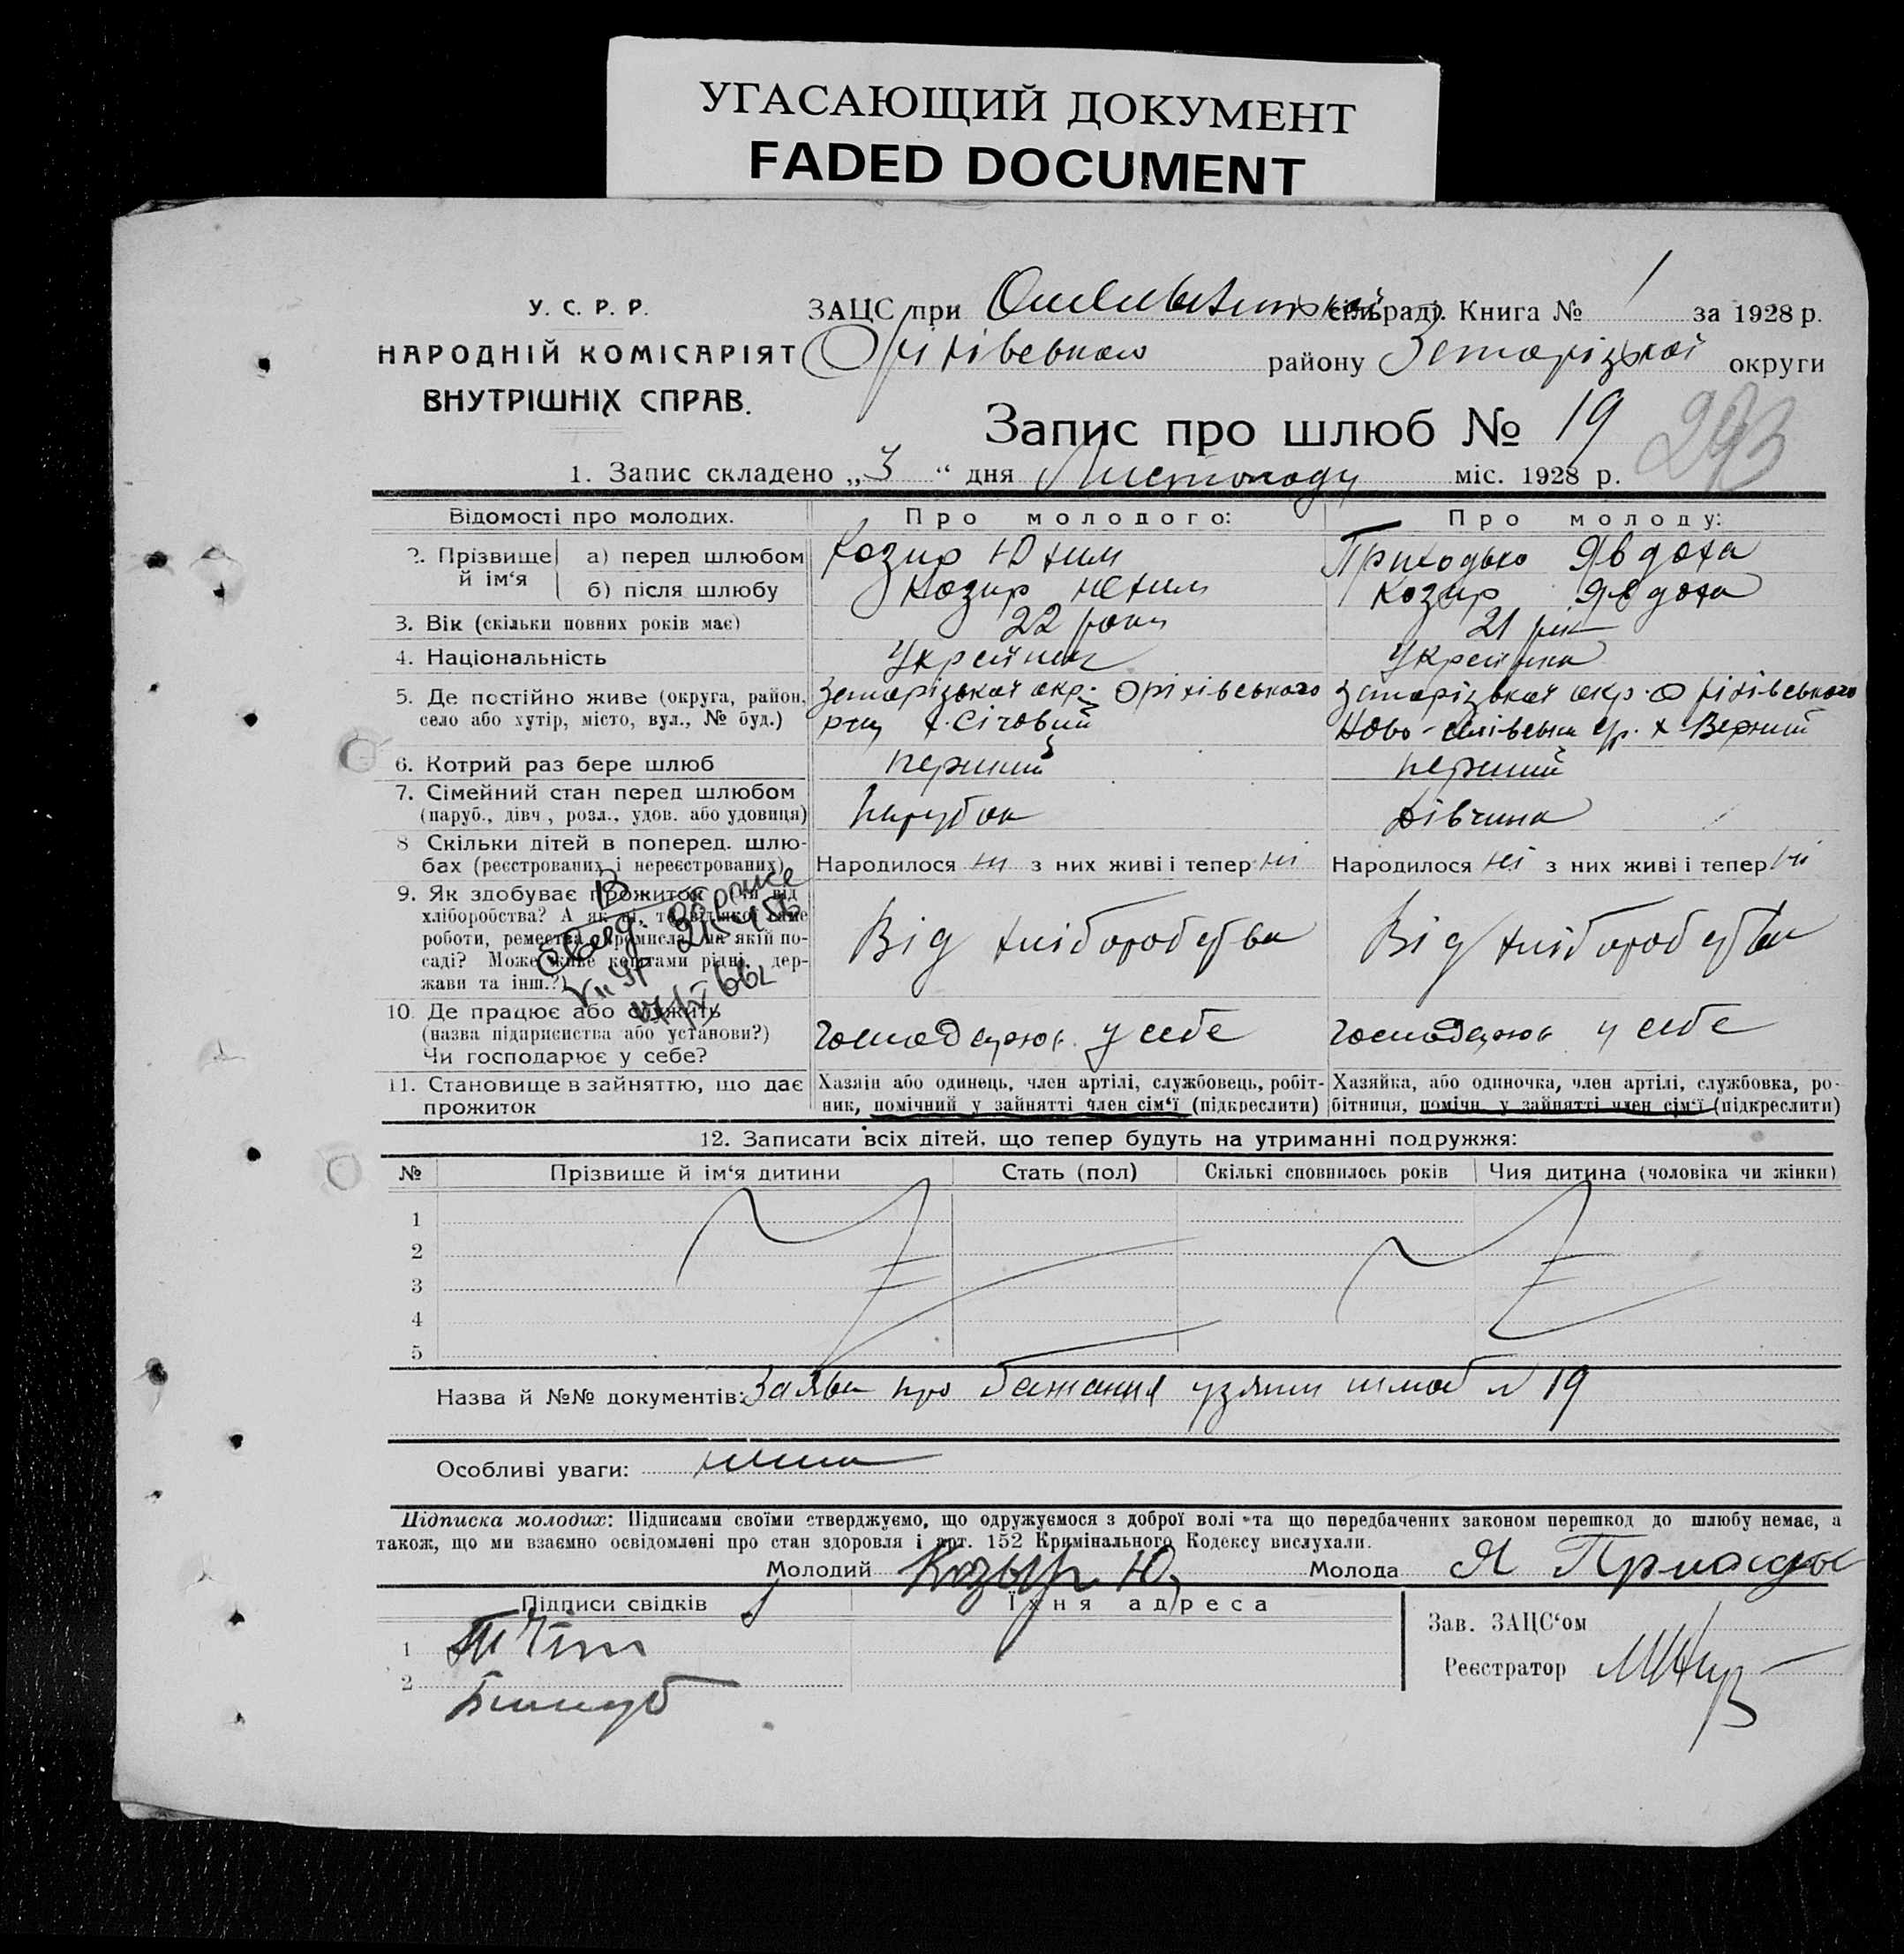 УГАСАЮЩИЙ ДОКУМЕНТ
FADED DOCUMENT
У. С. Р. Р.
НАРОДНІЙ КОМІСАРІЯТ
ВНУТРІШНІХ СПРАВ.
ЗАЦС при сільраді. Книга № 1 за 1928 р.
Оріхівського району Запорізької округи
Запис про шлюб № 19
293
1. Запис складено „3“ дня Листопаду міс. 1928 р.
Відомості про молодих. Про молодого: Про молоду:
2. Прізвище й ім‘я а) перед шлюбом Козир Юхим Приходько Явдоха
б) після шлюбу Козир Юхим Козир Явдоха
3. Вік (скільки повних років має) 22 роки 21 рік
4. Національність Українець Українка
5. Де постійно живе (округа, район, Запорізької окр. Оріхівського Запорізької окр. Оріхівського
село або хутір, місто, вул., № буд.) р-ну х. Січовий х Верхній
6. Котрий раз бере шлюб перший перший
7. Сімейний стан перед шлюбом
(паруб., дівч, розл., удов. або удовиця) Парубок Дівчина
8 Скільки дітей в поперед. шлю-
бах (реєстрованих і нереєстрованих) Народилося ні з них живі і тепер ні Народилося ні з них живі і тепер ні
9. Як здобуває прожиток (чи від
хліборобства? А як ні, то від якої саме
роботи, ремества, промисла, на якій по- Від хліборобства Від хліборобства
саді? Може живе коштами рідні, дер-
жави та інш.?)
10. Де працює або служить
(назва підприємства або установи?) Господарює у себе Господарює у себе
Чи господарює у себе?
11. Становище в зайняттю, що дає Хазяін або одинець, член артілі, службовець, робіт- Хазяйка, або одиночка, член артілі, службовка, ро-
прожиток ник, помічний у зайнятті член сім‘ї (підкреслити) бітниця, помічн. у зайнятті член сім‘ї (підкреслити)
12. Записати всіх дітей, що тепер будуть на утриманні подружжя:
№ Прізвище й ім‘я дитини Стать (пол) Скількі сповнилось років Чия дитина (чоловіка чи жінки)
1
2
3
4
5
Назва й №№ документів: Заява про бажання узяти шлюб № 19
Особливі уваги: нема
Підписка молодих: Підписами своїми стверджуємо, що одружуємося з доброї волі та що передбачених законом перешкод до шлюбу немає, а
також, що ми взаємно освідомлені про стан здоровля і арт. 152 Кримінального Кодексу вислухали.
Молодий Козыр Ю, Молода Я
Підписи свідків Їхня адреса
Зав. ЗАЦС‘ом
1
Реєстратор
2